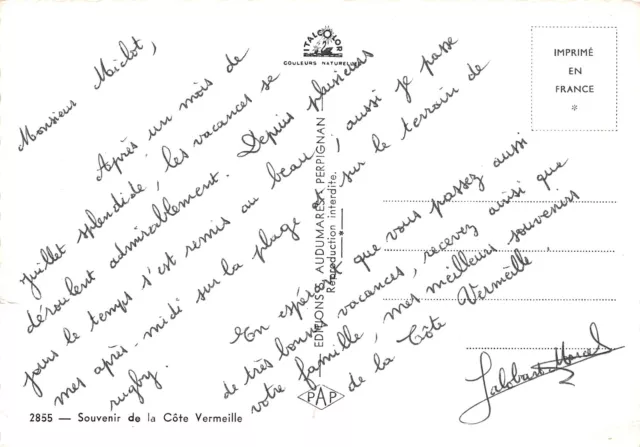 ITALCOLOR
COULEURS NATURELLES
IMPRIMÉ
EN
FRANCE
*
Monsieur Miclot,
Après un mois de
juillet splendide, les vacances se
déroulent admirablement. Depuis plusieurs
jours le temps s'est remis au beau, aussi je passe
mes après-midi sur la plage et sur le terrain de
rugby.
En espérant que vous passez aussi
de très bonnes vacances, recevez ainsi que
votre famille, mes meilleurs souvenirs
de la Côte Vermeille.
EDITIONS D'AUDUMARES PERPIGNAN
Reproduction interdite.
PAP
2855 — Souvenir de la Côte Vermeille